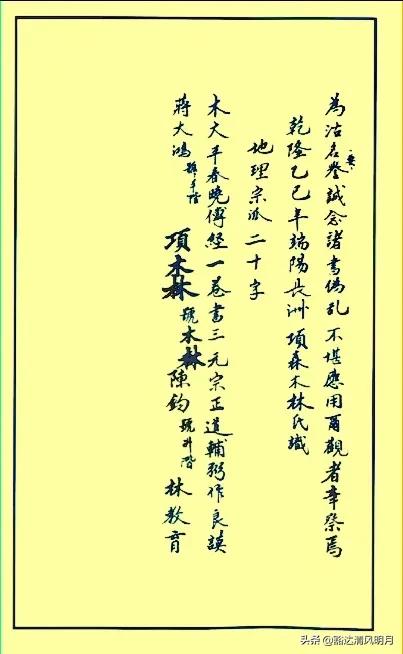 為沽名譽誠念諸書偽乱不堪應用爾觀者幸察焉
乾隆乙巳年端陽長洲項森木林氏識
地理宗派二十字
木大平春曉傅經一卷書三元宗正道輔弼作良謨
蔣大鴻號平階 項木林號木林 陳鈞號升階 林教育
头条 @豁达清风明月